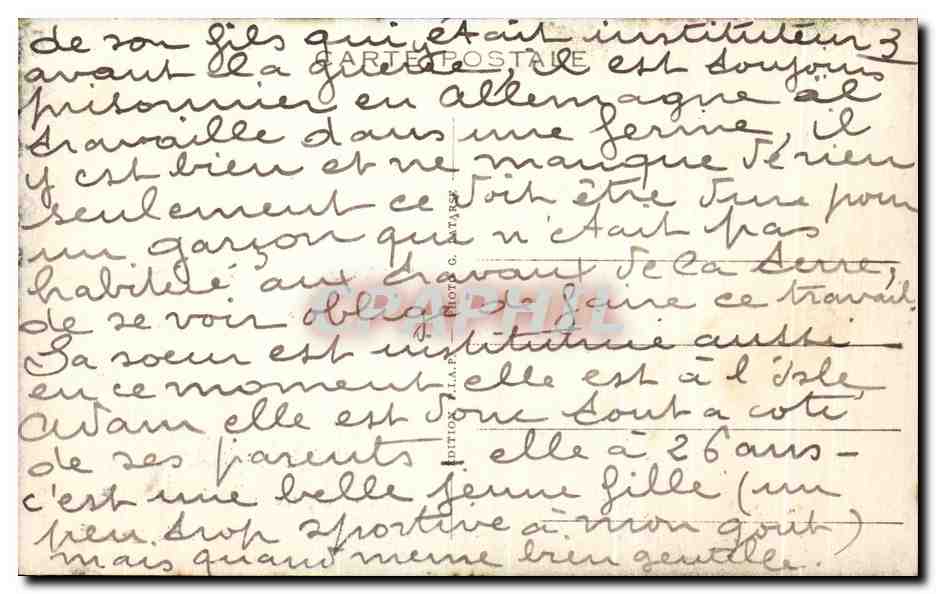 de son fils qui était instituteur 3
CARTE POSTALE
avant la guerre, il est toujours
prisonnier en Allemagne il
travaille dans une ferme, il
y est bien et ne manque de rien
seulement ce doit être dur pour
un garçon qui n'était pas
habitué aux travaux de la terre,
de se voir obligé de faire ce travail.
Sa soeur est institutrice aussi
en ce moment elle est à l'Isle
Adam elle est donc tout a coté
de ses parents - elle à 26 ans -
c'est une belle jeune fille (un
peu trop sportive à mon goût)
mais quand meme bien gentille.
EDITION P.I.A.P. PHOTO G. LATARSE
CPAPHIL